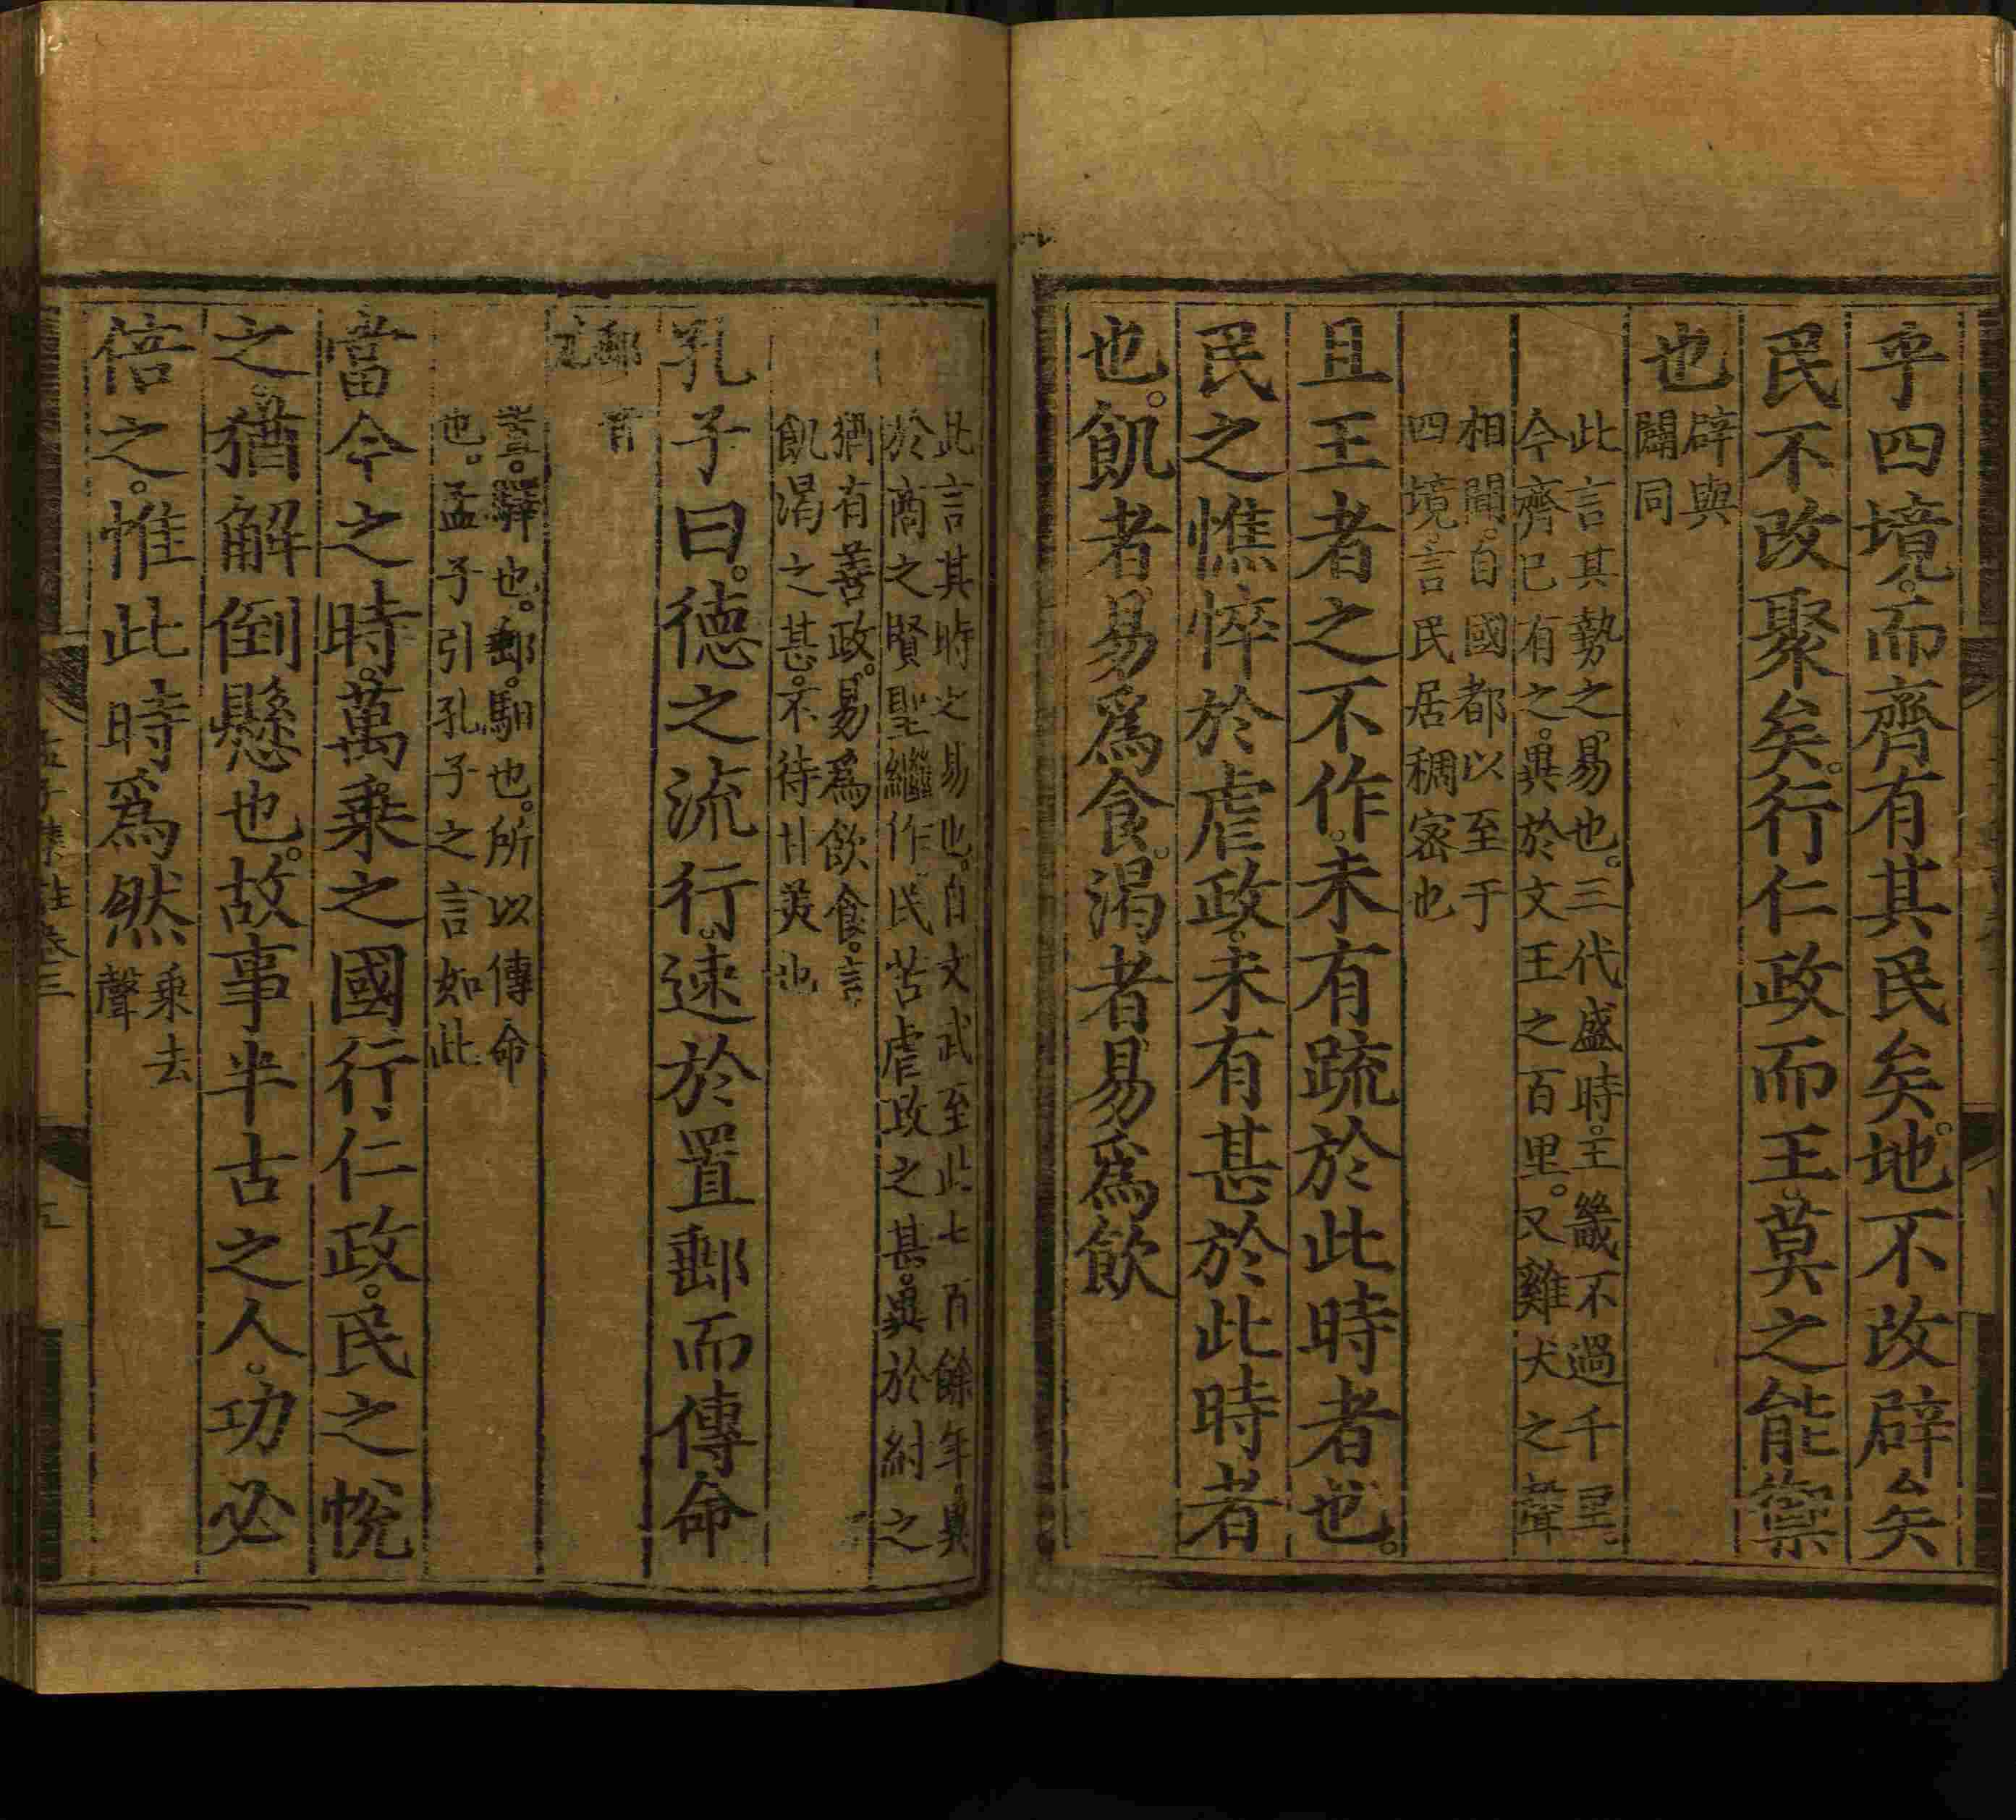 乎四境。而齊有其民矣。地不改辟矣
民不改聚矣。行仁政而王。莫之能禦
也
辟與
闢同
此言其勢之易也。三代盛時。王畿不過千里。
今齊已有之。異於文王之百里。又雞犬之聲
相聞。自國都以至于
四境。言民居稠密也
且王者之不作。未有疏於此時者也。
民之憔悴於虐政。未有甚於此時者
也。飢者易爲食。渴者易爲飲
此言其時之易也。自文武至此七百餘年。異
於商之賢聖繼作。民苦虐政之甚。異於紂之
猶有善政。易爲飲食。言
飢渴之甚。不待甘美也
孔子曰。德之流行。速於置郵而傳命
郵音
尤
置。驛也。郵。馹也。所以傳命
也。孟子引孔子之言如此
當今之時。萬乘之國行仁政。民之悅
之。猶解倒懸也。故事半古之人。功必
倍之。惟此時爲然
乘去
聲